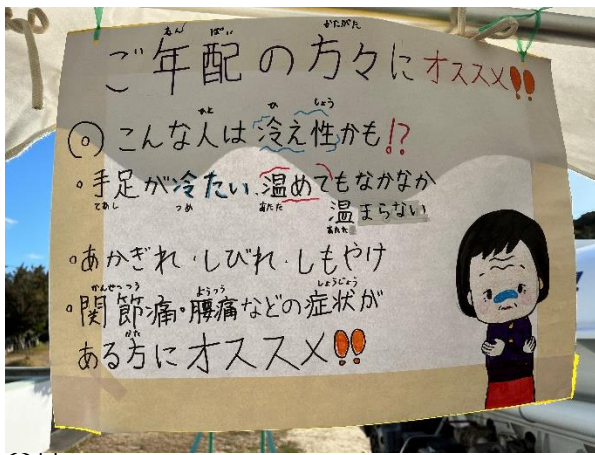 ご年配の方々にオススメ!!
◎こんな人は冷え性かも!?
・手足が冷たい、温めてもなかなか
温まらない
・あかぎれ・しびれ・しもやけ
・関節痛・腰痛などの症状が
ある方にオススメ!!